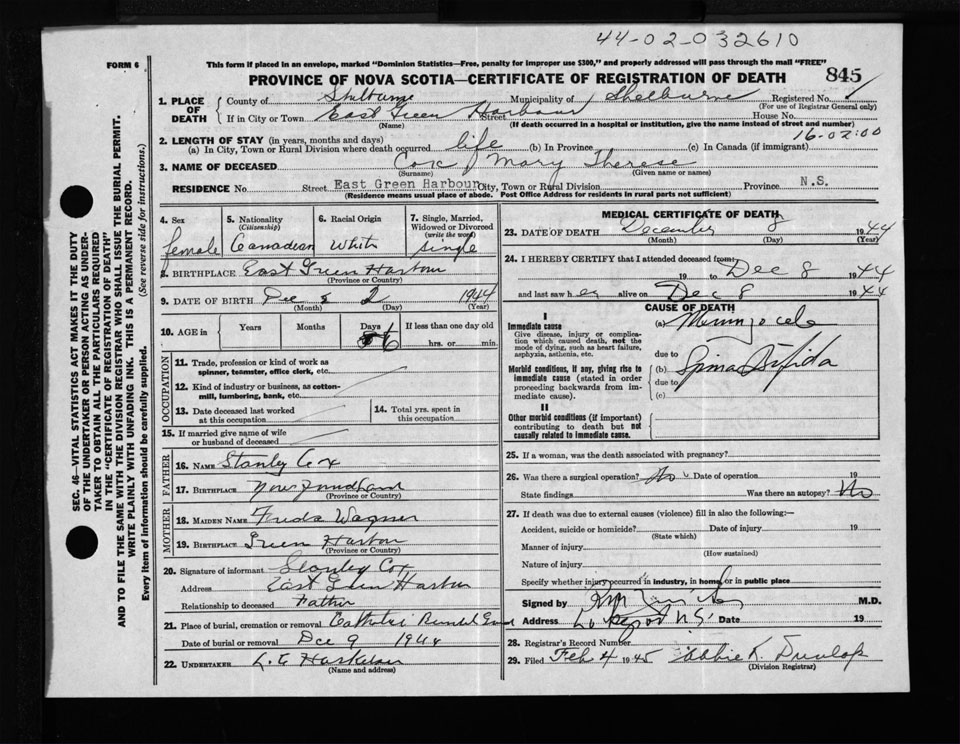 44-02-032610
FORM 6
This form if placed in an envelope, marked "Dominion Statistics—Free, penalty for improper use $300," and properly addressed will pass through the mail "FREE"
PROVINCE OF NOVA SCOTIA—CERTIFICATE OF REGISTRATION OF DEATH 845
1. PLACE OF DEATH County of Shelburne Municipality of Shelburne Registered No.
(For use of Registrar General only)
If in City or Town East Green Harbour Street House No.
(Name) (If death occurred in a hospital or institution, give the name instead of street and number)
16-02:00
2. LENGTH OF STAY (in years, months and days)
(a) In City, Town or Rural Division where death occurred life (b) In Province (c) In Canada (if immigrant)
3. NAME OF DECEASED Cox Mary Therese
(Surname) (Given name or names)
RESIDENCE No. Street East Green Harbour City, Town or Rural Division Province N.S.
(Residence means usual place of abode. Post Office Address for residents in rural parts not sufficient)
4. Sex 5. Nationality (Citizenship) 6. Racial Origin 7. Single, Married, Widowed or Divorced (write the word)
female Canadian White single
8. BIRTHPLACE East Green Harbour
(Province or Country)
9. DATE OF BIRTH Dec 2 1944
(Month) (Day) (Year)
10. AGE in Years Months Days If less than one day old
6 hrs. or min.
OCCUPATION
11. Trade, profession or kind of work as spinner, teamster, office clerk, etc.
12. Kind of industry or business, as cotton-mill, lumbering, bank, etc.
13. Date deceased last worked at this occupation 14. Total yrs. spent in this occupation
15. If married give name of wife or husband of deceased
FATHER
16. NAME Stanley Cox
17. BIRTHPLACE Newfoundland
(Province or Country)
MOTHER
18. MAIDEN NAME Freda Wagner
19. BIRTHPLACE Green Harbour
(Province or Country)
20. Signature of informant Stanley Cox
Address East Green Harbour
Relationship to deceased Father
21. Place of burial, cremation or removal Catholic Burial
Date of burial or removal Dec 9 1944
22. UNDERTAKER L. E
(Name and address)
MEDICAL CERTIFICATE OF DEATH
23. DATE OF DEATH December 8 1944
(Month) (Day) (Year)
24. I HEREBY CERTIFY that I attended deceased from:
19 to Dec 8 1944
and last saw her alive on Dec 8 1944
CAUSE OF DEATH
I
Immediate cause
Give disease, injury or complication which caused death, not the mode of dying, such as heart failure, asphyxia, asthenia, etc.
(a)
due to
Morbid conditions, if any, giving rise to immediate cause (stated in order proceeding backwards from immediate cause).
(b) Spina Bifida
due to
(c)
II
Other morbid conditions (if important) contributing to death but not causally related to immediate cause.
25. If a woman, was the death associated with pregnancy?
26. Was there a surgical operation? No Date of operation 19
State findings Was there an autopsy? No
27. If death was due to external causes (violence) fill in also the following:—
Accident, suicide or homicide? Date of injury 19
(State which)
Manner of injury
(How sustained)
Nature of injury
Specify whether injury occurred in industry, in home, or in public place
Signed by M.D.
Address Lockeport N.S. Date 19
28. Registrar's Record Number
29. Filed Feb 4 1945 Abbie K. Dunlop
(Division Registrar)
SEC. 46—VITAL STATISTICS ACT MAKES IT THE DUTY
OF THE UNDERTAKER OR PERSON ACTING AS UNDER-
TAKER TO OBTAIN ALL THE PARTICULARS REQUIRED
IN THE "CERTIFICATE OF REGISTRATION OF DEATH"
AND TO FILE THE SAME WITH THE DIVISION REGISTRAR WHO SHALL ISSUE THE BURIAL PERMIT.
WRITE PLAINLY WITH UNFADING INK. THIS IS A PERMANENT RECORD.
Every item of information should be carefully supplied. (See reverse side for instructions.)